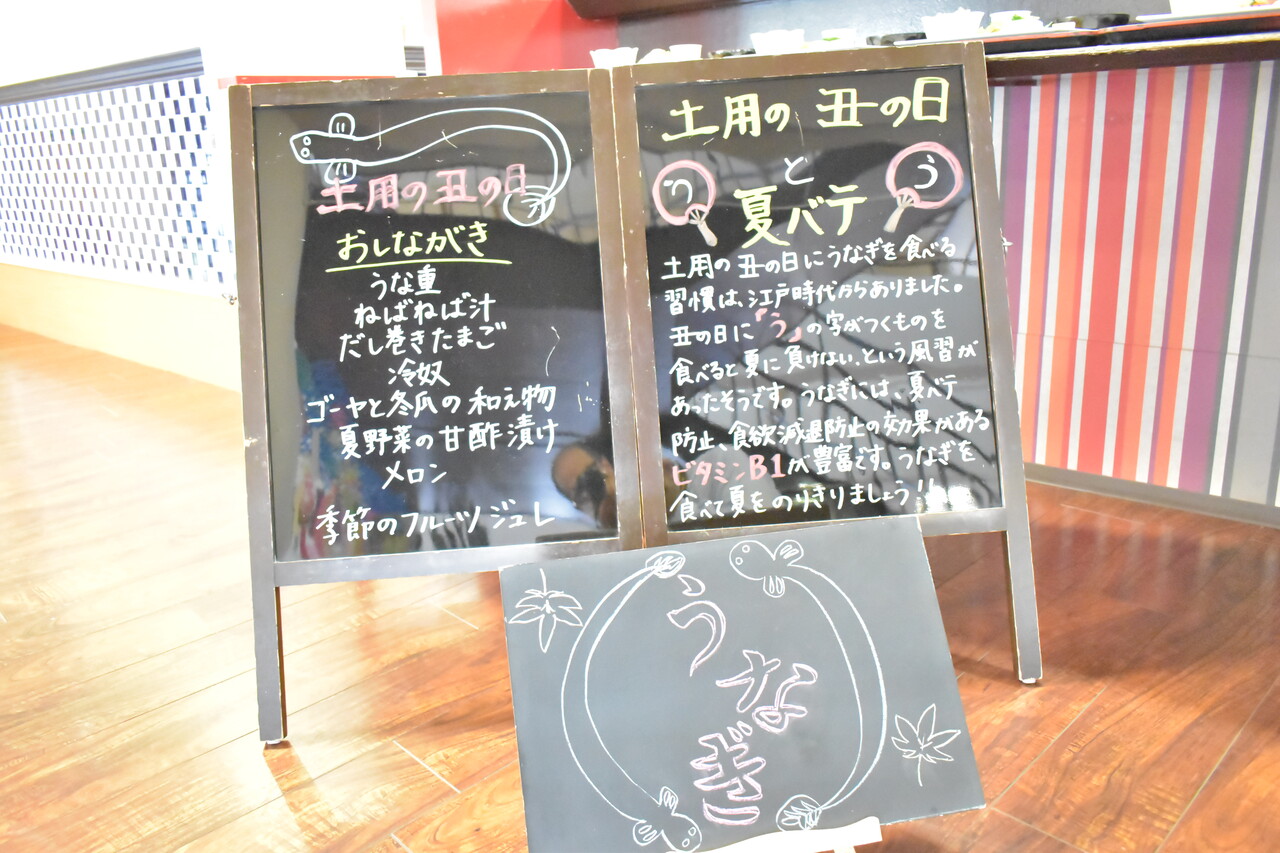 土用の丑の日
おしながき
うな重
ねばねば汁
だし巻きたまご
冷奴
ゴーヤと冬瓜の和え物
夏野菜の甘酢漬け
メロン
季節のフルーツジュレ
土用の丑の日
と
う
う
夏バテ
土用の丑の日にうなぎを食べる
習慣は、江戸時代からありました。
丑の日に「う」の字がつくものを
食べると夏に負けない、という風習が
あったそうです。うなぎには、夏バテ
防止、食欲減退防止の効果がある
ビタミンB1が豊富です。うなぎを
食べて夏をのりきりましょう!!
うなぎ